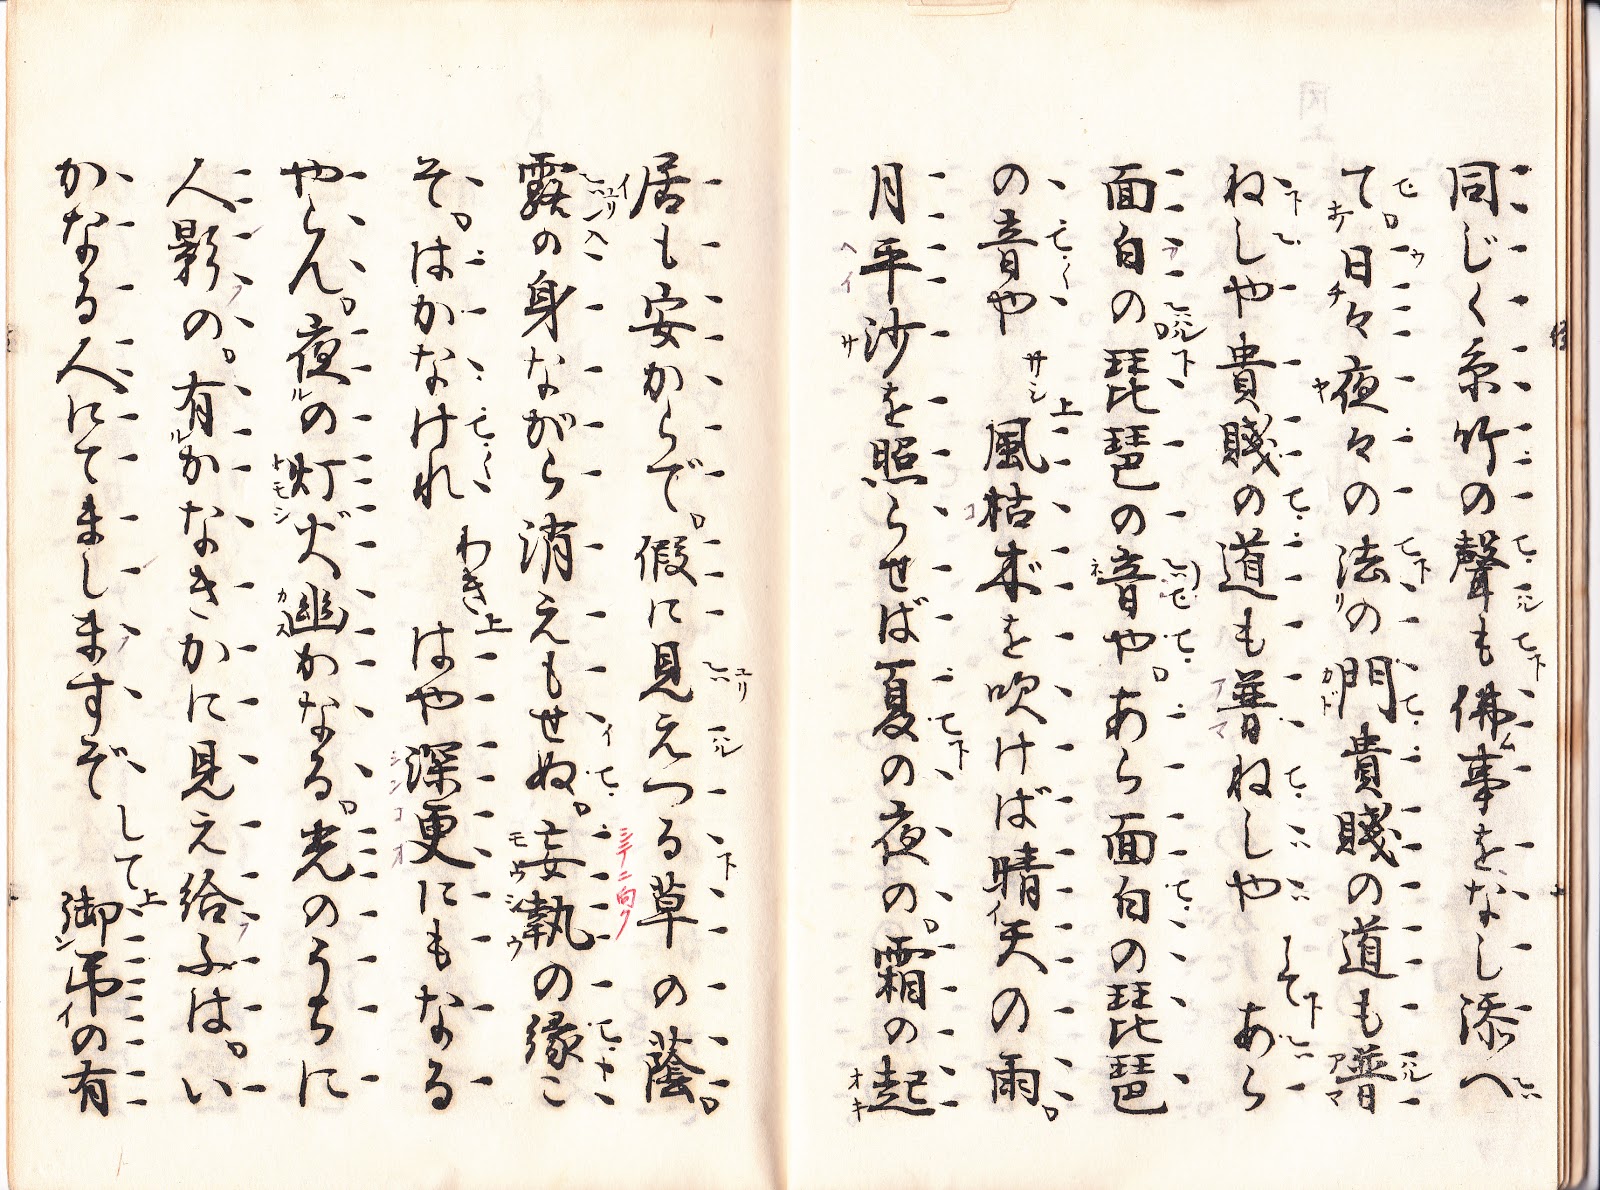 同じく糸竹の聲も佛事をなし添へ
て。日々夜々の法の門貴賤の道も普
ねしや貴賤の道も普ねしや してあら
面白の琵琶の音や。あら面白の琵琶
の音や サシ上 風枯木を吹けば晴天の雨。
月平沙を照らせば夏の夜の。霜の起
居も安からで。假に見えつる草の蔭。
露の身ながら消えもせぬ。妄執の縁こ
そ。はかなけれ わき上 はや深更にもなる
やらん。夜の灯火幽かなる。光のうちに
人影の。有かなきかに見え給ふは。い
かなる人にてましますぞ して上 御弔の有